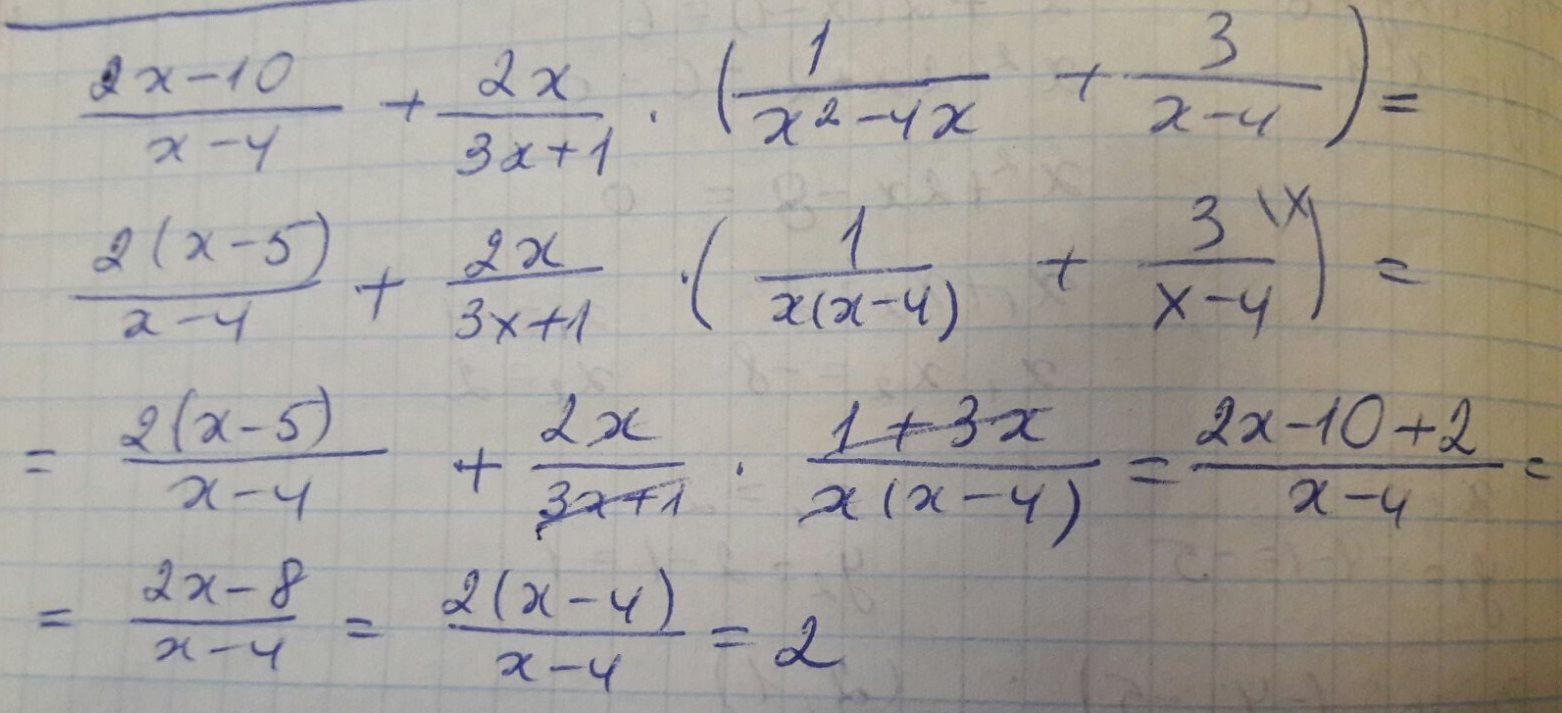 (2x-10)/(x-4) + 2x/(3x+1) · (1/(x²-4x) + 3/(x-4)) =
2(x-5)/(x-4) + 2x/(3x+1) · (1/(x(x-4)) + 3\x/(x-4)) =
= 2(x-5)/(x-4) + 2x/(3x+1) · (1+3x)/(x(x-4)) = (2x-10+2)/(x-4) =
= (2x-8)/(x-4) = 2(x-4)/(x-4) = 2